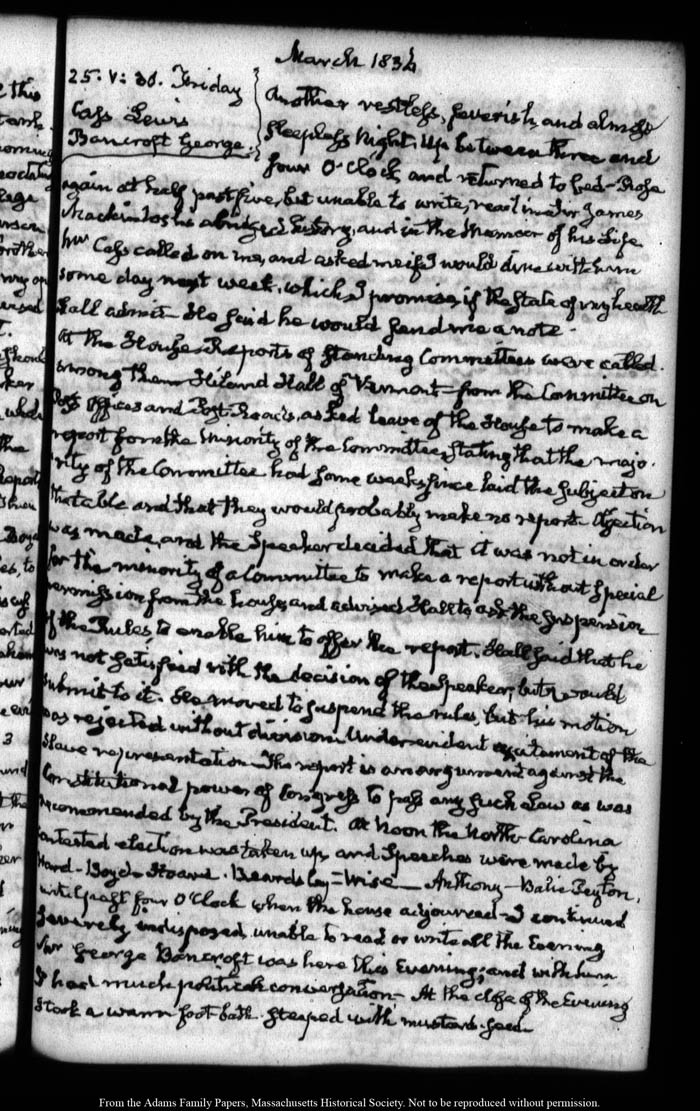 March 1834
25. V: 30. Friday
Cass Lewis
Bancroft George.
Another restless, feverish, and almost
sleepless Night. Up between three and
four O'Clock, and returned to bed—Rose
again at half past five, but unable to write, read in Sir James
Mackintosh's abridged history, and in the Memoir of his Life
Mr Cass called on me, and asked me if I would dine with him
some day next week, which I promise, if the state of my health
shall admit. He said he would send me a note.
At the House Reports of standing Committees were called.
among them Hiland Hall of Vermont—from the Committee on
Post Offices and Post-Roads, asked leave of the House to make a
report from the Minority of the Committee, stating that the majo-
rity of the Committee had some weeks since laid the subject on
the table and that they would probably make no report. Objection
was made, and the Speaker decided that it was not in order
for the minority of a Committee to make a report without special
permission from the house, and advised Hall to ask the suspension
of the Rules, to enable him to offer the report. Hall said that he
was not satisfied with the decision of the Speaker, but would
submit to it. He moved to suspend the rules, but his motion
was rejected without division. Under evident excitement of the
slave representation—The report is an argument against the
Constitutional power of Congress to pass any such Law as was
recommended by the President. At Noon the North-Carolina
contested election was taken up, and speeches were made by
Hard—Boyd—Hoard. Beardsley—Wise—Anthony—Balie Peyton,
until past four O'Clock when the house adjourned—I continued
severely indisposed, unable to read or write all the Evening
Mr George Bancroft was here this Evening; and with him
I had much political conversation—At the close of the Evening
I took a warm foot-bath steeped with mustard-seed
From the Adams Family Papers, Massachusetts Historical Society. Not to be reproduced without permission.